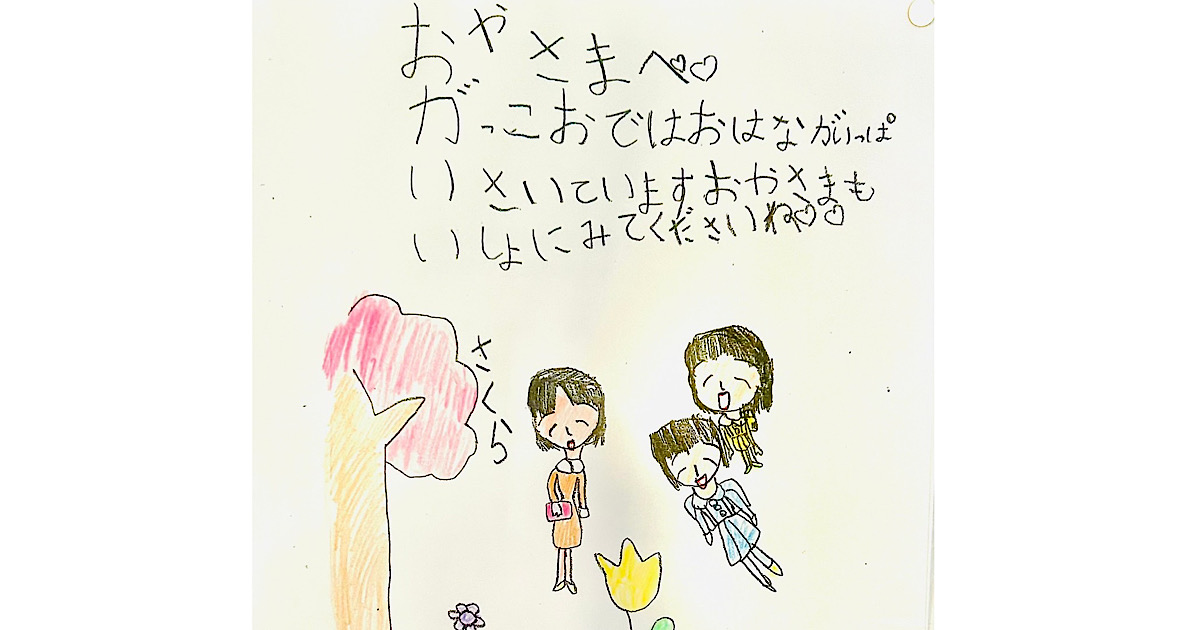 おやさまへ♡♡
がっこおではおはながいっぱ
いさいていますおやさまも
いしょにみてくださいね♡♡
さくら